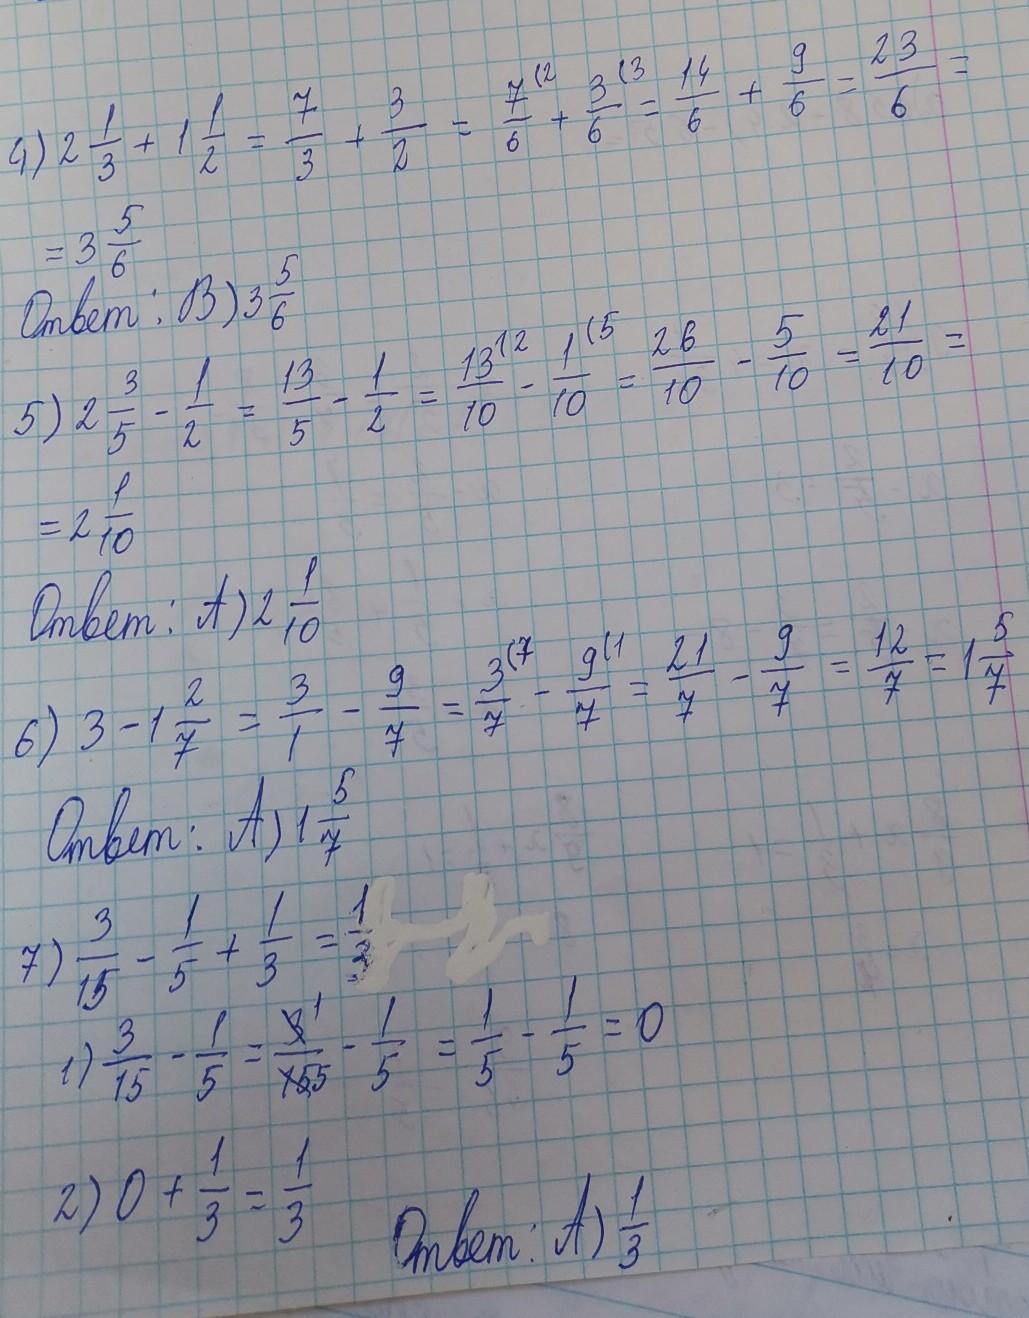 4) 2 1/3 + 1 1/2 = 7/3 + 3/2 = 7(2/6 + 3(3/6 = 14/6 + 9/6 = 23/6 =
= 3 5/6
Ответ: В) 3 5/6
5) 2 3/5 - 1/2 = 13/5 - 1/2 = 13(2/10 - 1(5/10 = 26/10 - 5/10 = 21/10 =
= 2 1/10
Ответ: А) 2 1/10
6) 3 - 1 2/7 = 3/1 - 9/7 = 3(7/7 - 9(1/7 = 21/7 - 9/7 = 12/7 = 1 5/7
Ответ: А) 1 5/7
7) 3/15 - 1/5 + 1/3 = 1/3
1) 3/15 - 1/5 = 3 1/15 5 - 1/5 = 1/5 - 1/5 = 0
2) 0 + 1/3 = 1/3
Ответ: А) 1/3